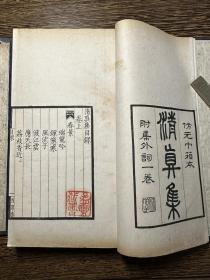 仿元巾箱本
清真集
附集外詞一卷
清真集目錄
卷上
春景
瑞龍吟
鎖窗寒
風流子
渡江雲
應天長
荔枝香近二